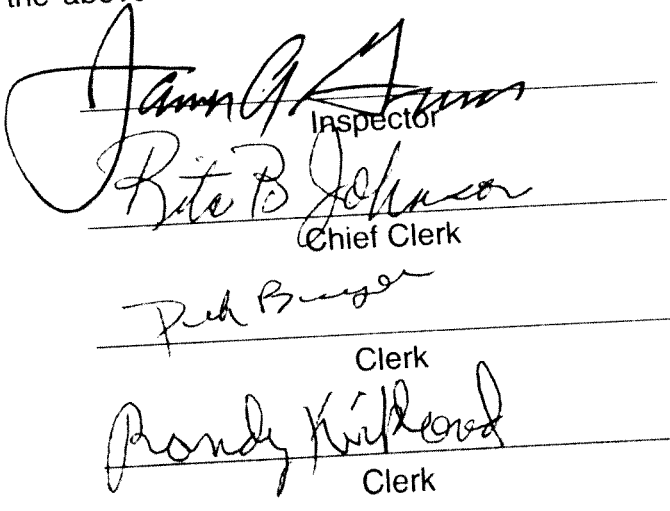 the above
James G
Inspector
Rita B Johnson
Chief Clerk
Clerk
Randy Kirkland
Clerk